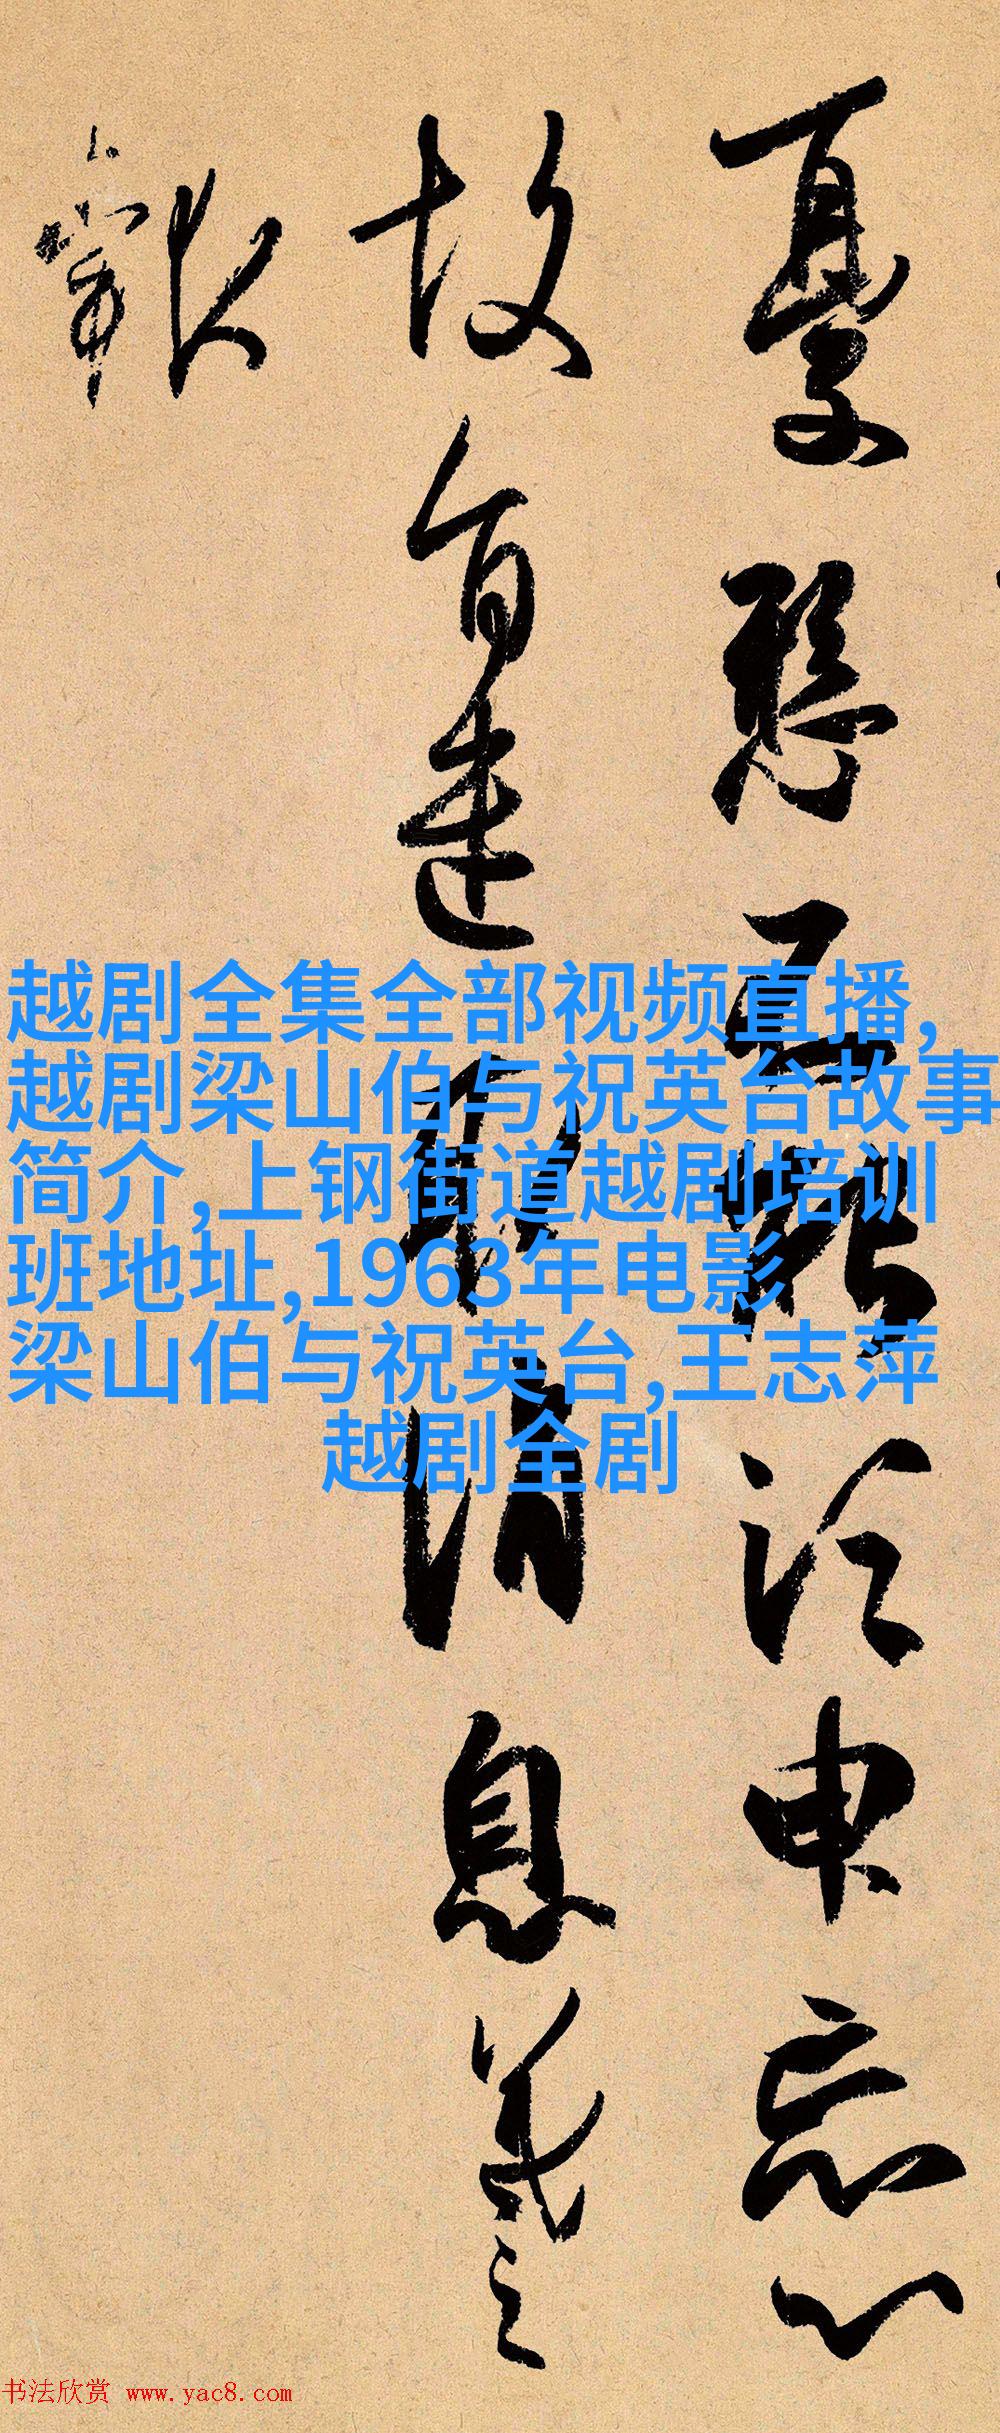 憂懸不能須臾忘心
故旨遣取消息羲之
報
越剧全集全部视频直播,
越剧梁山伯与祝英台故事
简介,上钢街道越剧培训
班地址,1963年电影
梁山伯与祝英台,王志萍
越剧全剧
书法欣赏 www.yac8.com